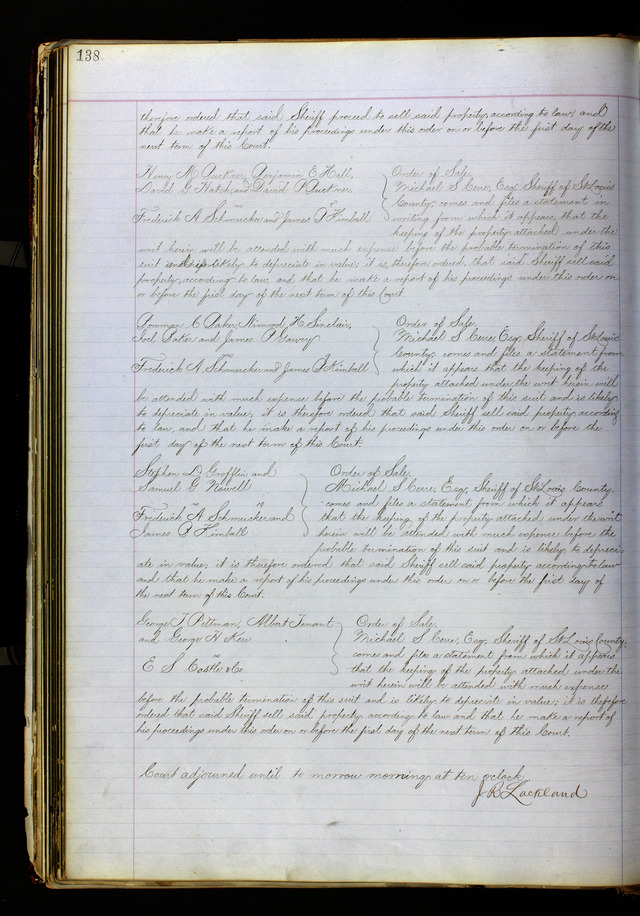 138
therefore ordered that said Sheriff proceed to sell said property, according to law; and
that he make a report of his proceedings under this order on or before the first day of the
next term of this Court.
Henry M Buckner, Benjamin E Hall,
David G Hatch, and David P Buckner
vs
Frederick A Schmucker and James P Kimball
Order of Sale.
Michael S Cerre, Esq, Sheriff of St Louis
County, comes and files a statement in
writing from which it appears, that the
keeping of the property attached under the
writ herein will be attended with much expense before the probable termination of this
suit and is likely to depreciate in value; it is, therefore, ordered, that said Sheriff sell said
property, according to law, and that he make a report of his proceedings under this order on
or before the first day of the next term of this Court.
C Baker, Nimrod H Sinclair,
Joel Bater and James P Garvey
vs
Frederick A Schmucker and James P Kimball
Order of Sale.
Michael S Cerre, Esq, Sheriff of St Louis
County, comes and files a statement from
which it appears that the keeping of the
property attached under the writ herein will
be attended with much expense before the probable termination of this suit and is likely
to depreciate in value; it is therefore ordered that said Sheriff sell said property according
to law, and that he make a report of his proceedings under this order on or before the
first day of the next term of this Court.
Stephen D Griffin and
Samuel G Nowell
vs
Frederick A Schmucker and
James P Kimball
Order of Sale.
Michael S Cerre, Esq, Sheriff of St Louis County,
comes and files a statement from which it appears
that the keeping of the property attached under the writ
herein will be attended with much expense before the
probable termination of this suit and is likely to depreci-
ate in value; it is therefore ordered that said Sheriff sell said property according to law
and that he make a report of his proceedings under this order on or before the first day of
the next term of this Court.
George T Pittman, Albert Tennant
and George H Kerr
vs
E S Castle & Co
Order of Sale.
Michael S Cerre, Esq, Sheriff of St Louis County,
comes and files a statement from which it appears
that the keeping of the property attached under the
writ herein will be attended with much expense
before the probable termination of this suit and is likely to depreciate in value; it is therefore
ordered that said Sheriff sell said property according to law and that he make a report of
his proceedings under this order on or before the first day of the next term of this Court.
Court adjourned until to morrow morning at ten o'clock
J R Lackland